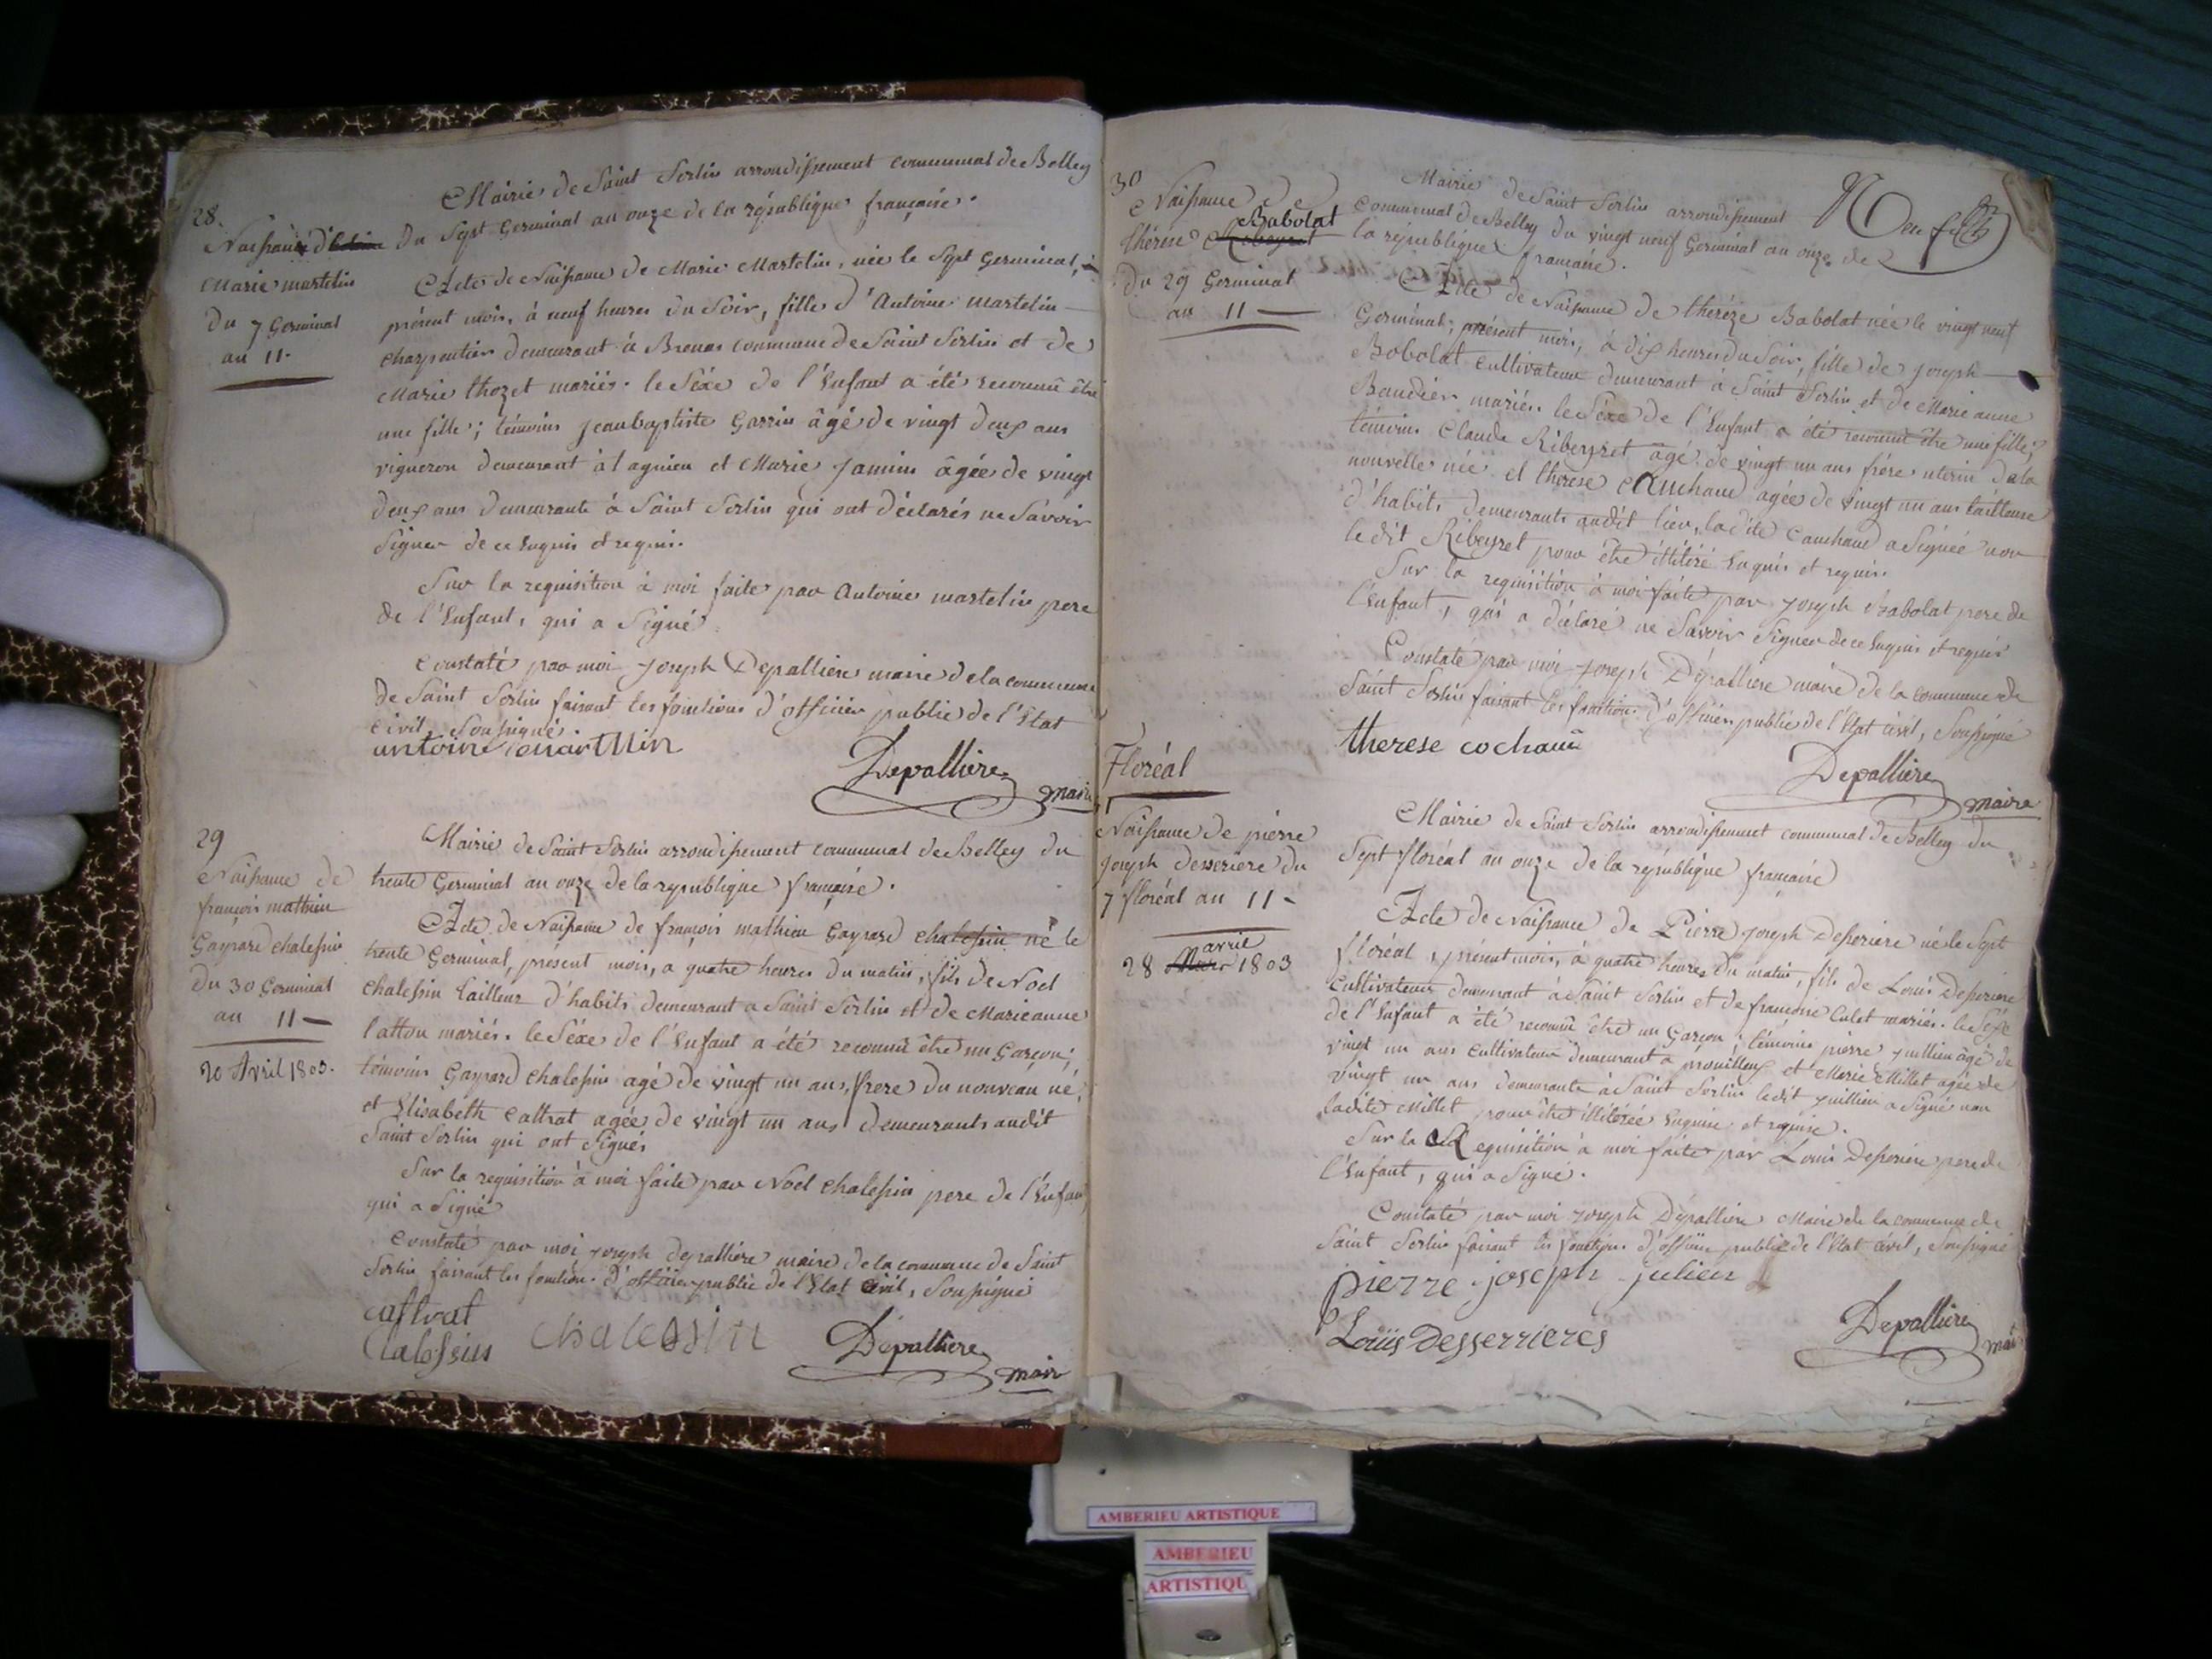 28.
Naissance d'
Marie martelin
du 7 Germinal
an 11.
Mairie de Saint Sorlin arrondissement communal de Belley
du Sept Germinal an onze de la république française.
Acte de Naissance de Marie Martelin, née le Sept Germinal,
présent mois, à neuf heures du Soir, fille d'Antoine Martelin
charpentier demeurant à Brenas commune de Saint Sorlin et de
Marie thozet mariés. le Séxe de l'Enfant a été reconnû être
une fille; témoins Jeanbaptiste Garrin âgé de vingt deux ans
vigneron demeurant à Lagnieu et Marie Jamin âgée de vingt
deux ans demeurante à Saint Sorlin qui ont déclarés ne Savoir
Signer de ce Enquis et requis.
Sur la requisition à moi faite par Antoine martelin pere
de l'Enfant, qui a Signé
Constaté par moi Joseph Depalliere maire de la commune
de Saint Sorlin faisant les fonctions d'officier public de l'Etat
Civil, Soussigné
antoine
Depalliere
maire
29
Naissance de
françois mathieu
Gaspard chalessin
du 30 Germinal
an 11
20 Avril 1803.
Mairie de Saint Sorlin arrondissement communal de Belley du
trente Germinal an onze de la république française.
Acte de Naissance de françois mathieu Gaspard chalessin né le
trente Germinal, présent mois, a quatre heures du matin, fils de Noel
chalessin tailleur d'habits demeurant a Saint Sorlin et de Marieanne
lattou mariés. le Séxe de l'Enfant a été reconnû être un Garçon;
témoins Gaspard chalessin agé de vingt un ans, frere du nouveau né,
et Elisabeth cattrat agée de vingt un ans demeurants audit
Saint Sorlin qui ont Signés
Sur la requisition à moi faite par Noel chalessin pere de l'Enfant
qui a Signé
Constaté par moi joseph depalliére maire de la commune de Saint
Sorlin faisant les fonctions d'officier public de l'Etat Civil, Soussigné
cattrat
chalessin
Depalliere
maire
30
Naissance de
Babolat
thérèse
du 29 Germinal
an 11
Mairie de Saint Sorlin arrondissement
communal de Belley du vingt neuf Germinal an onze de
la république française.
Acte de Naissance de thérèze Babolat née le vingt neuf
Germinal, présent mois, à dix heures du Soir, fille de joseph
Bobolat cultivateur demeurant à Saint Sorlin et de Marie anne
Baudier mariés. le Séxe de l'Enfant a été reconnû être une fille;
témoins Claude Ribeyret âgé de vingt un ans frére uterin de la
nouvelle née et therese Cauchaud agée de vingt un ans tailleuse
d'habits demeurants audit lieu, la dite Cauchaud a Signée non
ledit Ribeyret pour être illitéré Enquis et requis.
Sur la requisition à moi faite par Joseph Babolat pere de
l'Enfant, qui a déclaré ne Savoir Signer de ce Enquis et requis
Constaté par moi Joseph Depalliere maire de la commune de
Saint Sorlin faisant les fonctions d'officier public de l'Etat civil, Soussigné
therese cochaud
Depalliere
maire
Floréal
Naissance de pierre
joseph desseriere du
7 floréal an 11
avril
28 1803
Mairie de Saint Sorlin arrondissement communal de Belley du
Sept floréal an onze de la république française
Acte de Naissance de Pierre joseph Desseriere né le Sept
floréal, présent mois, à quatre heures du matin, fils de Louis Desseriere
Cultivateur demeurant à Saint Sorlin et de françoise Culet mariés. le Séxe
de l'Enfant a été reconnû être un Garçon; témoins pierre juillien âgé de
vingt un ans Cultivateur demeurant à et Marie Millet agée de
vingt un ans demeurante à Saint Sorlin ledit juillien a Signé non
ladite Millet pour être illiterée Enquise et requise.
Sur la Requisition à moi faite par Louis Desseriere pere de
l'Enfant, qui a Signé.
Constaté par moi joseph Dépalliere Maire de la commune de
Saint Sorlin faisant les fonctions d'officier public de l'Etat civil, Soussigné
pierre joseph julien
Louis Desserrieres
Depalliere
maire
AMBERIEU ARTISTIQUE
AMBERIEU
ARTISTIQU